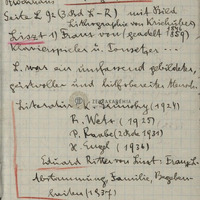 Seite L 92 (3. Bd L-R) mit Bild
Lithographie von Kriehuber
Liszt 1) Franz von (geadelt 1859)
Klavierspieler u. Tonsetzer...
L. war ein umfassend gebildeter,
geistvoller und hilfsbereiter Mensch.
Literatur:
(1924)
R. Wetz (1925)
P. Raabe (2 Bde 1931)
H. Engel (1936)
Eduard Ritter von Liszt: Franz L.
Abstammung, Familie, Begeben-
heiten (1937)